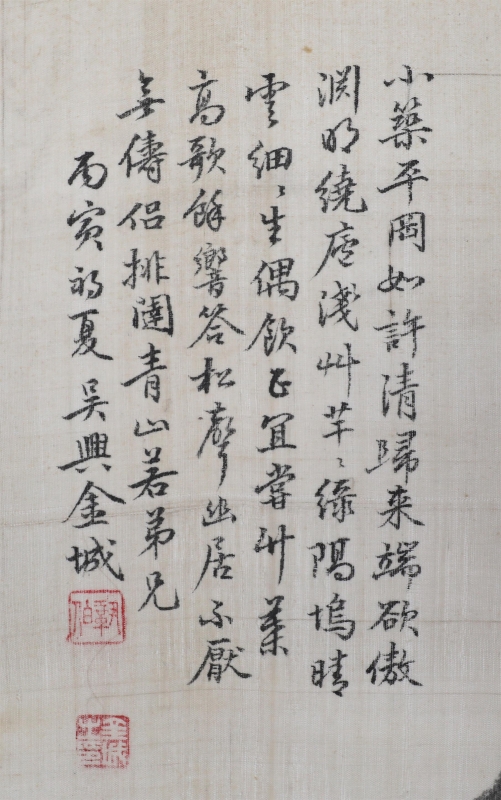 小築平岡如許清歸来端欲傲
淵明繞廬淺艸芊〻綠隔塢晴
雲細〻生偶飲正宜嘗竹葉
高歌餘響答松聲幽居不厭
無儔侶排闥青山若弟兄
丙寅初夏吳興金城
鞏伯